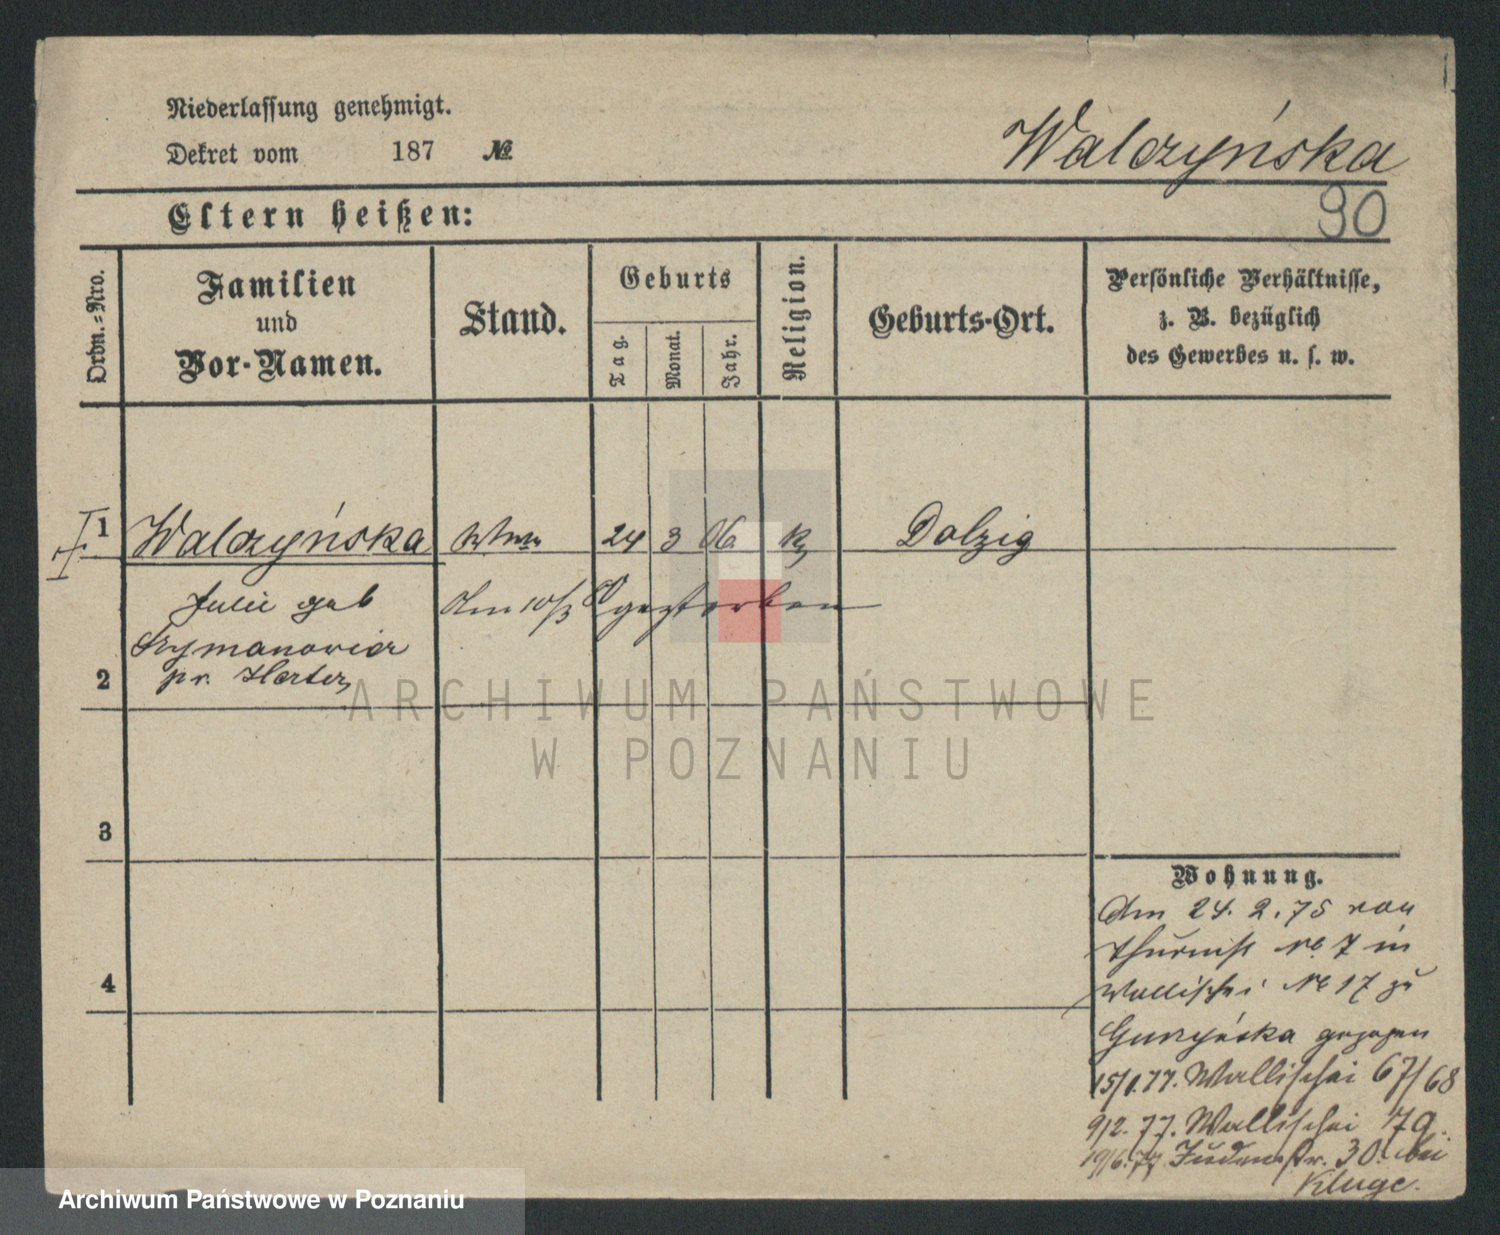 Niederlassung genehmigt.
Dekret vom 187 №
Walczyńska
90
Eltern heißen:
Ordn.-Nro.
Familien
und
Vor-Namen.
Stand.
Geburts
Tag.
Monat.
Jahr.
Religion.
Geburts-Ort.
Persönliche Verhältnisse,
z. B. bezüglich
des Gewerbes u. s. w.
1 Walczyńska 24 3 06 k Dolzig
Julie geb
Am 10/3 80 gestorben
Szymanowicz
2 pr.
ARCHIWUM PAŃSTWOWE
W POZNANIU
3
Wohnung.
Am 24. 2. 75 von
№ 7 in
4
Wallischei № 17 zu
gezogen
15/1. 77. Wallischei 67/68
9/2. 77. Wallischei 79.
19/6. 77. Judenstr. 30. bei
Kluge.
Archiwum Państwowe w Poznaniu